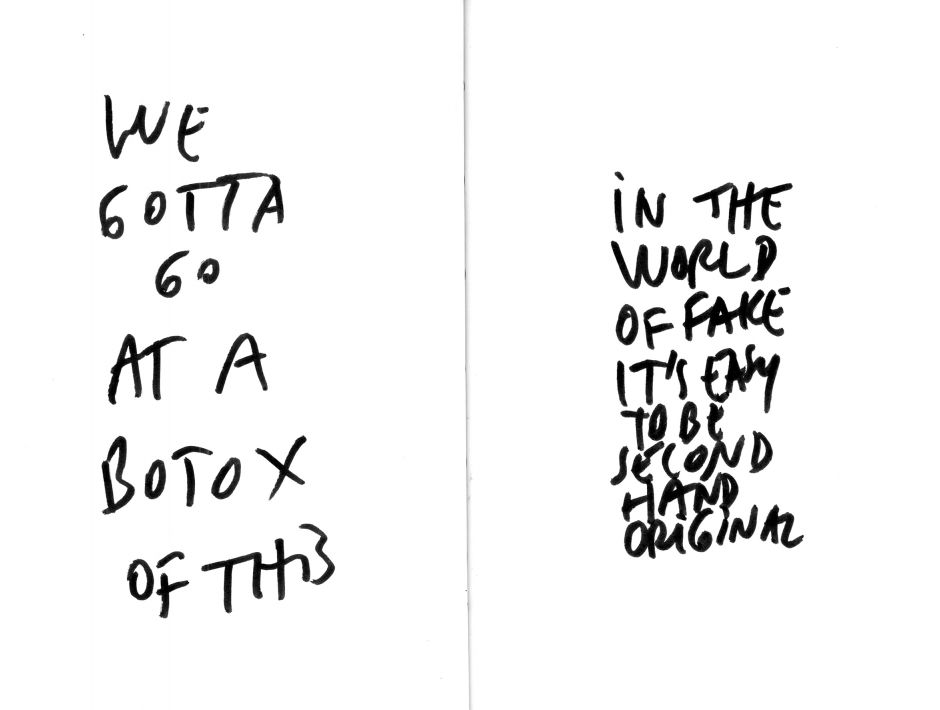 WE
GOTTA
GO
AT A
BOTOX
OF THIS
iN THE
WORLD
OF FAKE
IT'S EASY
TO BE
SECOND
HAND
ORIGINAL